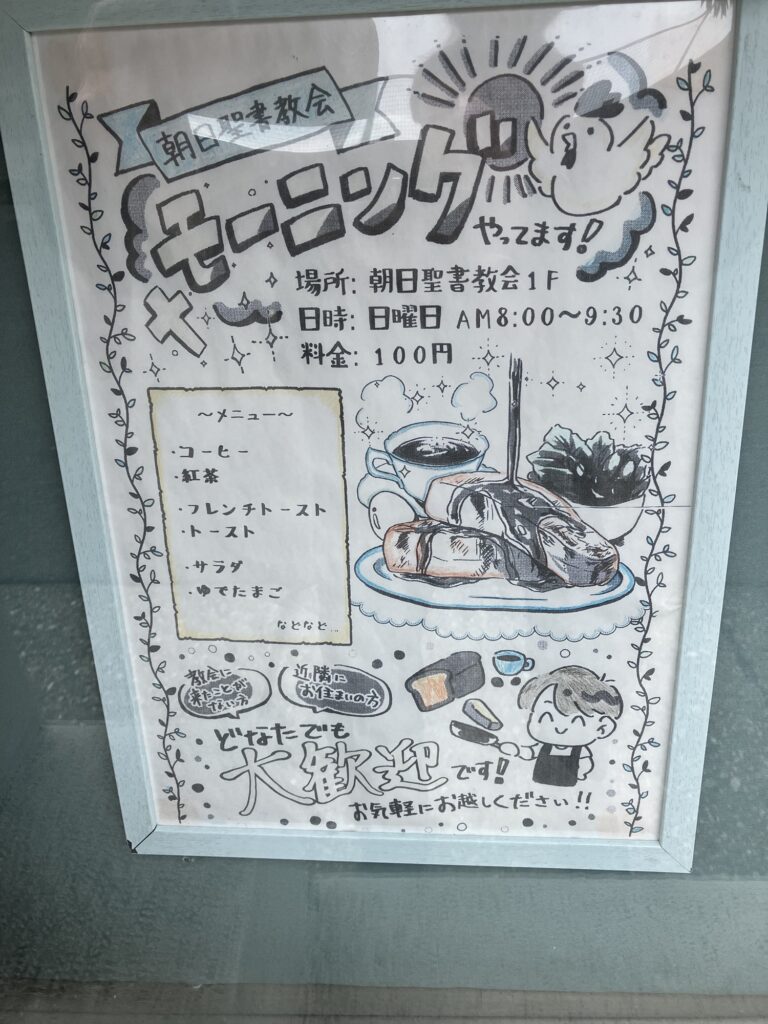 朝日聖書教会
モーニング
やってます!
場所: 朝日聖書教会1F
日時: 日曜日 AM8:00〜9:30
料金: 100円
〜メニュー〜
・コーヒー
・紅茶
・フレンチトースト
・トースト
・サラダ
・ゆでたまご
などなど…
教会に
来たことが
ない方
近隣に
お住まいの方
どなたでも
大歓迎です!
お気軽にお越しください!!